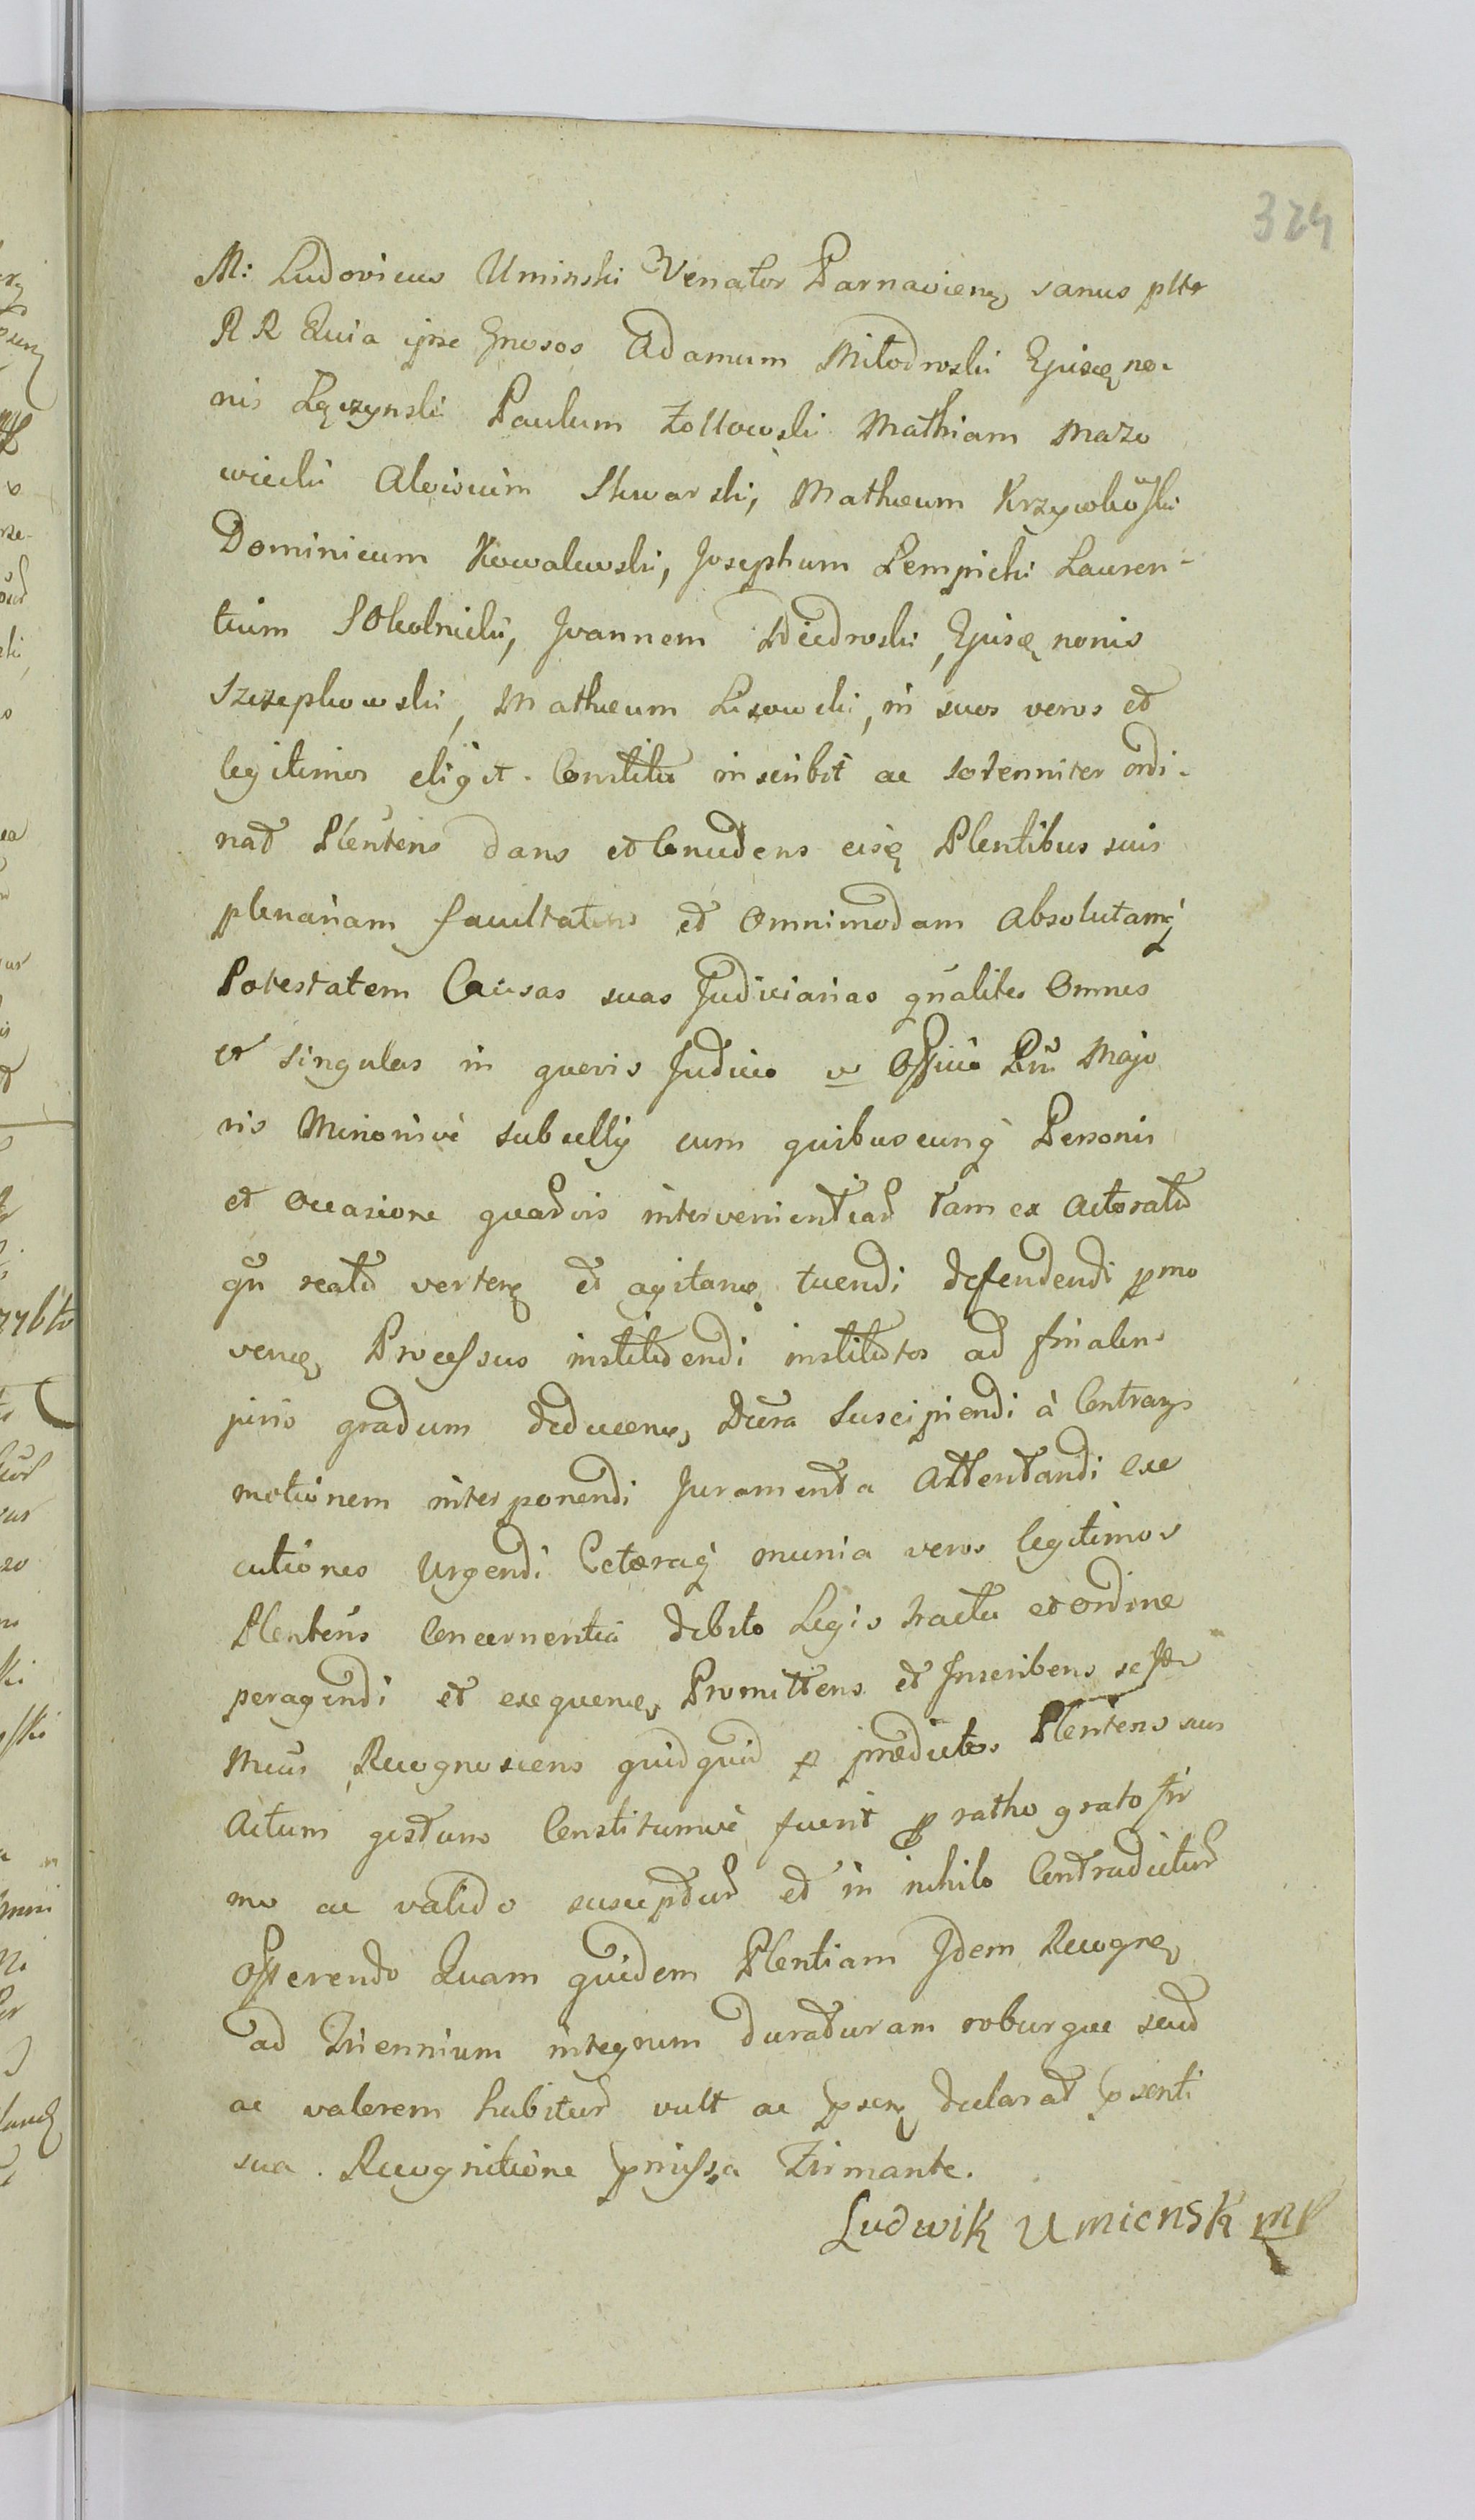 324
M: Ludovicus Uminski Venator Parnavien, sanus pltr
R R Quia ipse Gnosos Adamum Miłodroski Ejusq no-
nis Łączynski Paulum Żółtowski Mathiam Mazo
wiecki Aloisium Skwarski, Mathæum Krzywko
Dominicum Kowalewski, Josephum Lempicki Lauren-
tium SOkolnicki, Joannem Diedroski, Ejusq nonis
Szczepkowski, Mathæum Lisowski, in suos veros et
legitimos eligit. Constitu inscribit ac solenniter ordi-
nat Plentens dans et Concedens eisq Plentibus suis
plenariam facultatem et Omnimodam Absolutamq
Potestatem Causas suas Judiciarias qnalites Omnes
et singulas in quovis Judicio v Officio Rni Majo
ris Minorisve subsellij cum quibuscunq Personis
et Occasione quadvis intervenientiad tam ex Actoratu
qn reatu verten et agitan, tuendi defendendi pmo
ven, Processus instituendi institutos ad finalem
juris gradum deducen, Dcra Suscipiendi à Contrays
motionem interponendi Juramenta Attentandi Exe
cutiones Urgendi Cetæraq munia veros legitimos
Plentens Concernentia debito Legis tractu et Ordine
peragendi et exequen, Promittens et Inscribens sese
Recognoscens quidquid p prædictos Plentens suos
Actum gestum Constitumve fuerit p ratho grato fir
mo ac valido susceptur et in nihilo Contradictur
Offerendo Quam quidem Plentiam Idem Recogn,
ad Triennium integrum duraturam roburque seud
ac valorem habitur vult ac psen declarat psenti
sua Recognitione pmissa Firmante.
Ludwik Umienski mp